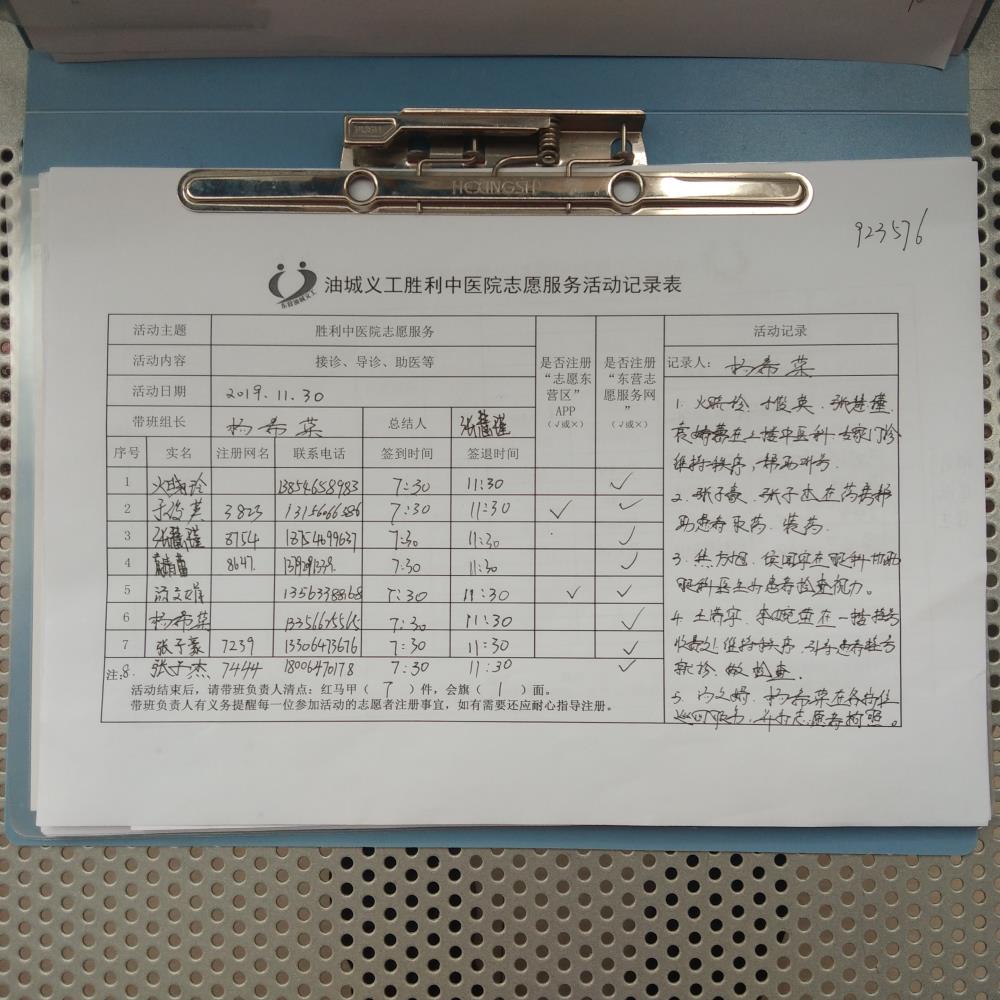 PUSH
HOUNGSH
923576
东营油城义工
油城义工胜利中医院志愿服务活动记录表
活动主题 胜利中医院志愿服务 是否注册“志愿东营区”APP（√或×） 是否注册“东营志愿服务网”（√或×） 活动记录
活动内容 接诊、导诊、助医等 记录人：杨希菜
活动日期 2019.11.30
带班组长 杨希菜 总结人 张慧瑾
序号 实名 注册网名 联系电话 签到时间 签退时间
1 13854658983 7:30 11:30 √
2 于俊英 3823 13156066586 7:30 11:30 √ √
3 张慧瑾 8754 18754699637 7:30 11:30 √
4 8647. 7:30 11:30 √
5 13563388868 7:30 11:30 √ √
6 杨希菜 13356675565 7:30 11:30 √
7 张子豪 7239 13306473676 7:30 11:30 √
注: 8. 张子杰 7444 18006470178 7:30 11:30 √
活动结束后，请带班负责人清点：红马甲（ 7 ）件，会旗（ 1 ）面。
带班负责人有义务提醒每一位参加活动的志愿者注册事宜，如有需要还应耐心指导注册。
1. 于俊英、张慧瑾、
在二楼中医科专家门诊
维持秩序，帮助叫号.
2. 张子豪、张子杰在药房帮
助患者取药、装药.
3. 在眼科协助
眼科医生为患者检查视力。
4. 在一楼挂号
收费处维持秩序，引导患者
就诊、做检查.
5. 杨希菜在各岗位
巡回服务，并为志愿者拍照。